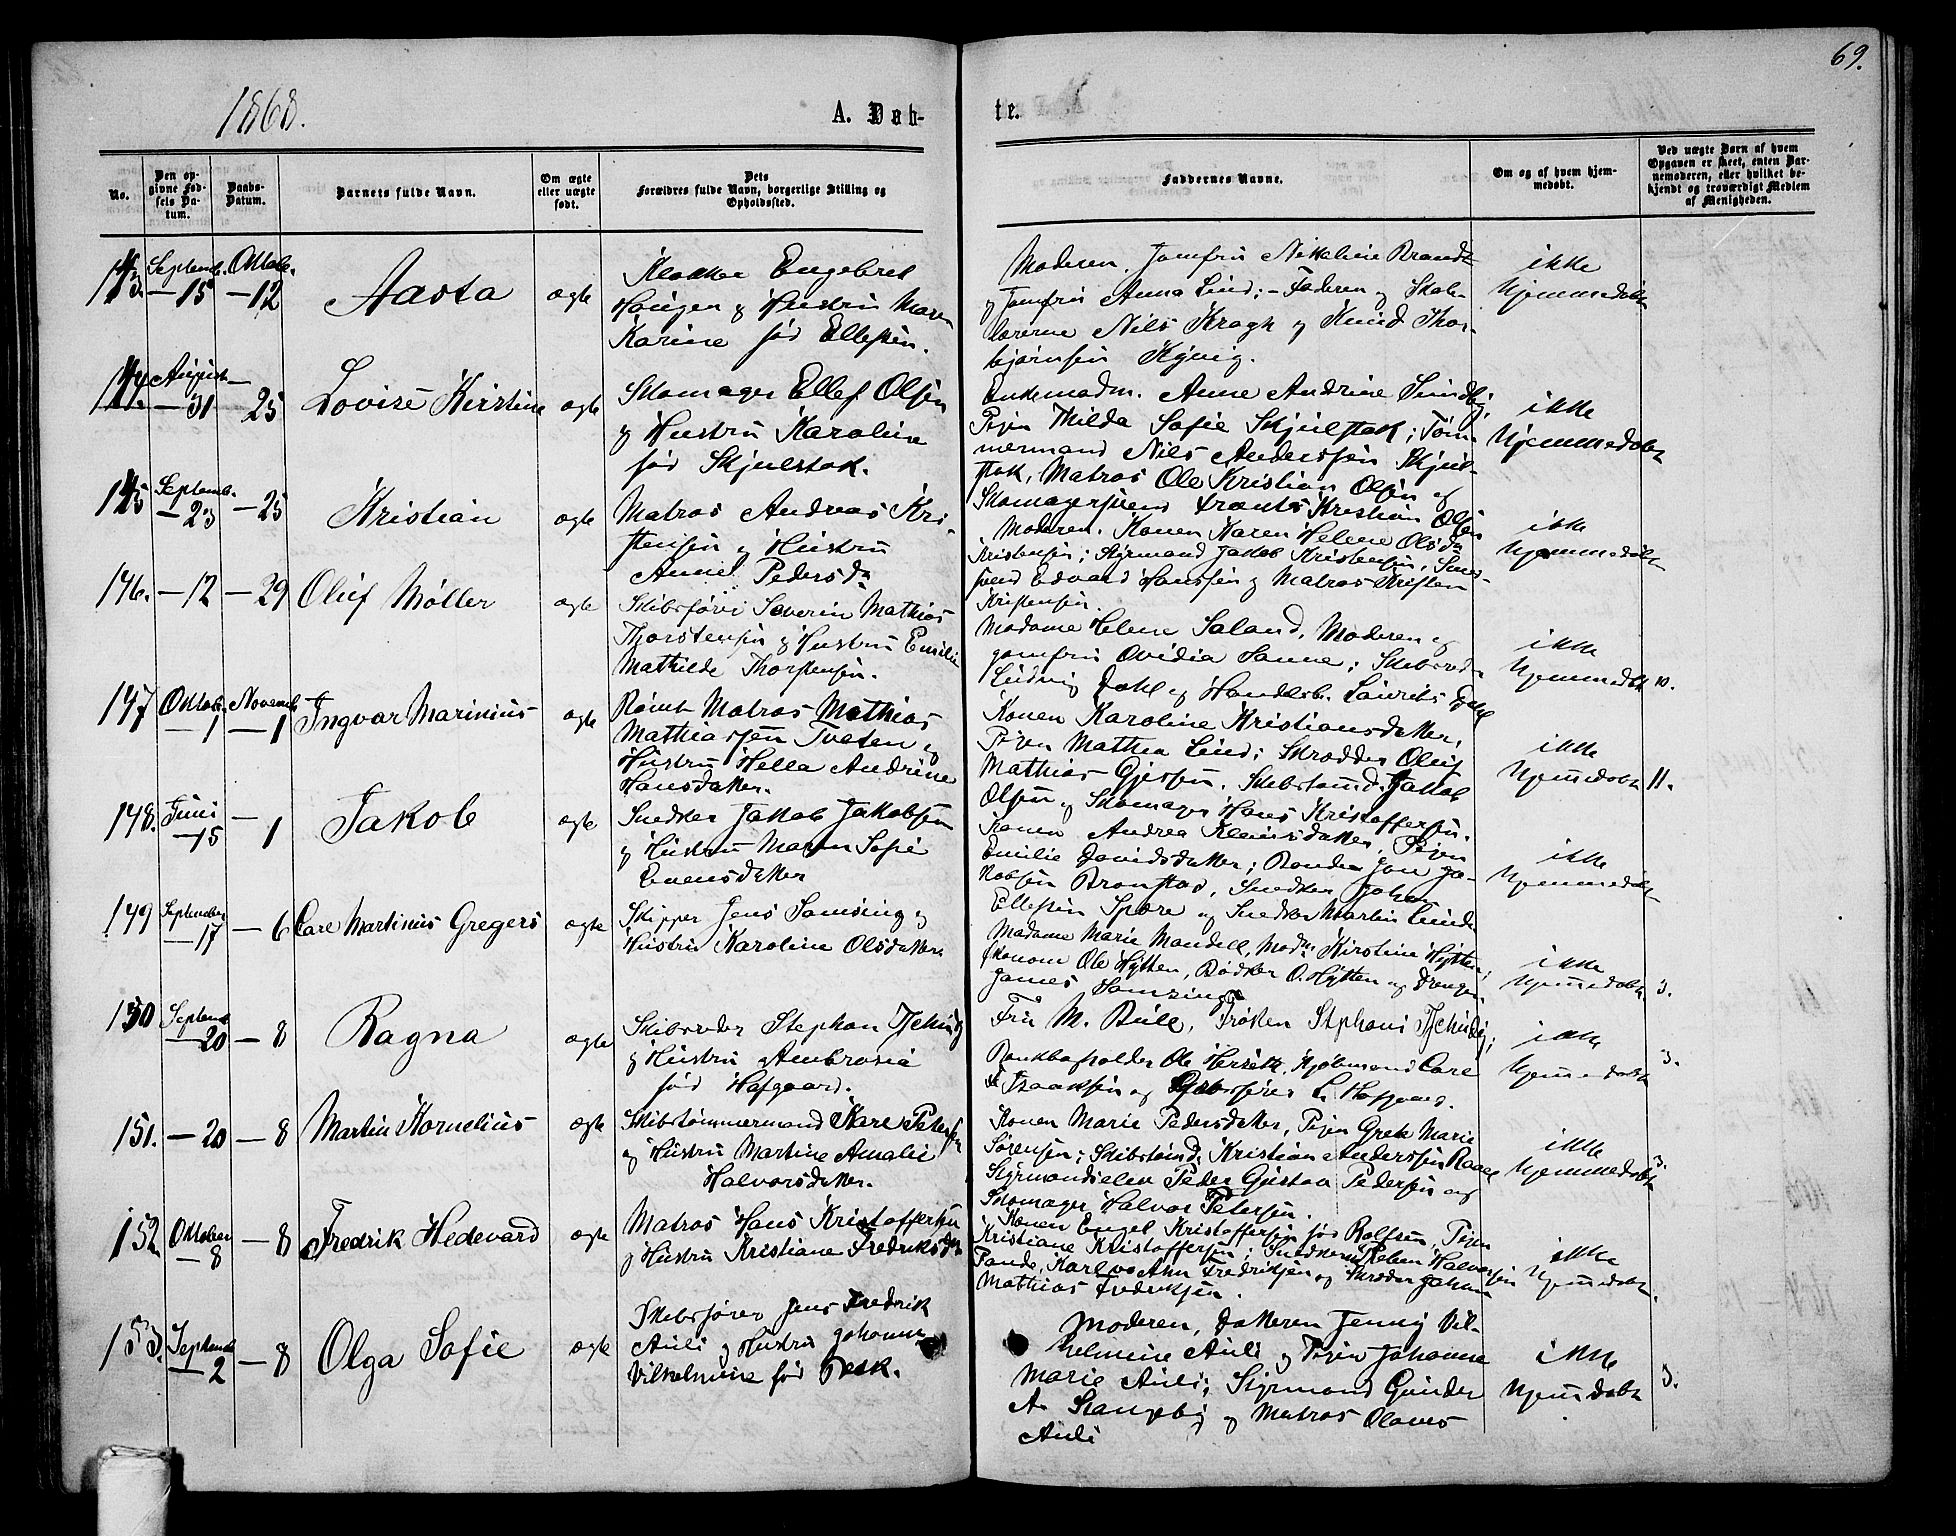 69.
1868.
A. Døb-
te.
No.
Den opgivne Fødsels Datum.
Daabs-Datum.
Barnets fulde Navn.
Om ægte eller uægte født.
Dets Forældres fulde Navn, borgerlige Stilling og Opholdssted.
Faddernes Navne.
Om og af hvem hjemmedøbt.
Ved uægte Børn af hvem Opgaven er skeet, enten Barnemoderen, eller hvilket bekjendt og troværdigt Medlem af Menigheden.
143. Septemb. – 15 Oktob. – 12 Aasta ægte
Klokker Engebret
Haugen og Hustru Maren
Karine fød Ellefsen.
Moderen, Jomfru Nikoline Brandt
og Jomfru Anna Lind; – Faderen og Skole-
lærerne Nils Kragh og Knud Thor-
bjørnsen
ikke
hjemmedøbt
144. August – 31 – 25 Lovise Kirstine ægte
Skomager Ellef Olsen
og Hustru Karoline
fød Skjulstok.
Enkemadm. Anne Andrine Lundby,
Pigen Thilda Sofie Skjulstok; Tøm-
mermand Nils Anderssen Skjul-
stok, Matros Ole Kristian Olsen og
Skomagersvend Frants Kristian Olsen
ikke
hjemmedøbt
145 Septemb. – 23 – 25 Kristian ægte
Matros Andreas Kri-
stensen og Hustru
Anne Pedersd.
Moderen. Konen Karen Helene Olsd.
Kristensen; Styrmand Jakob Kristensen, Smed-
svend Edvard Hanssen og Matros Kristen
Kristensen.
ikke
hjemmedøbt
146. – 12 – 29 Oluf Møller ægte
Skibsfører Severin Mathias
Thorstensen og Hustru Emilie
Mathilde Thorstensen.
Madame Helene Saland, Moderen og
Jomfru Ovidia Hanne; Skibsred.
Ludvig Dahl og Handelsb. Laurits
ikke
hjemmedøbt
10.
147 Oktob. – 1 Novemb. – 1 Ingvar Marinius ægte
Rømt Matros Mathias
Mathiassen Tveten og
Hustru Hella Andrine
Hansdatter.
Konen Karoline Kristiansdatter,
Pigen Mathea Lind; Skrædder Oluf
Mathias Gjessen, Skibstømd. Jakob
Olsen og Skomager Hans Kristoffersen.
ikke
hjemmedøbt
11.
148. Juni – 15 – 1 Jakob ægte
Snedker Jakob Jakobsen
og Hustru Maren Sofie
Evensdatter
Konen Andrea Kleivsdatter, Pigen
Emilie Davidsdatter; Bonden Jon Ja-
kobsen Bronstad, Snedker Johan
Ellefsen Spære og Snedker Martin Lunde
ikke
hjemmedøbt
149 September – 17 – 6 Carl Martinius Gregers ægte
Skipper Jens Samsing og
Hustru Karoline Olsdatter
Madame Marie Mandell, Madm. Kirstine Hytten;
Økonom Ole Hytten, Bødker O. Hytten og Drengen
James Samsing
ikke
hjemmedøbt
3.
150 Septemb. – 20 – 8 Ragna ægte
Skibsreder Stephan Tschudy
og Hustru Ambrosia
fød Hafgaard.
Fru M. Bull, Frøken Stphani Tschudy;
Bankbogholder Ole Hersett, Kjøbmand Carl
Isaaksen og Skibsfører L. Hafgaard.
ikke
hjemmedøbt
3.
151. – 20 – 8 Martin Kornelius ægte
Skibstømmermand Karl Petersen
og Hustru Martine Amalie
Halvorsdatter.
Konen Marie Pedersdatter, Pigen Grete Marie
Sørensen; Skibstømd. Kristian Anderssen
Styrmandselev Peder Gustav Pedersen og
Skomager Halvor Petersen.
ikke
hjemmedøbt
3.
152 Oktober – 8 – 8 Fredrik Hedevard ægte
Matros Hans Kristoffersen
og Hustru Kristiane Fredriksdr
Konen Engel Kristoffersen fød Rolfsen, Pigen
Kristiane Kristoffersen; Snedkersvend Peben Halvorsen
Pande, Karl Fredriksen og Skræder Johan
Mathias Fredriksen.
ikke
hjemmedøbt.
153. Septemb. – 2 – 8 Olga Sofie ægte
Skibsfører Jens Fredrik
Auli og Hustru Johanne
Vilhelmine fød Besk.
Moderen, Datteren Jenny Vil-
helmine Auli og Pigen Johanne
Marie Auli; Styrmand Gunder
A. Stangeby og Matros Olaves
Auli
ikke
hjemmedøbt
3.